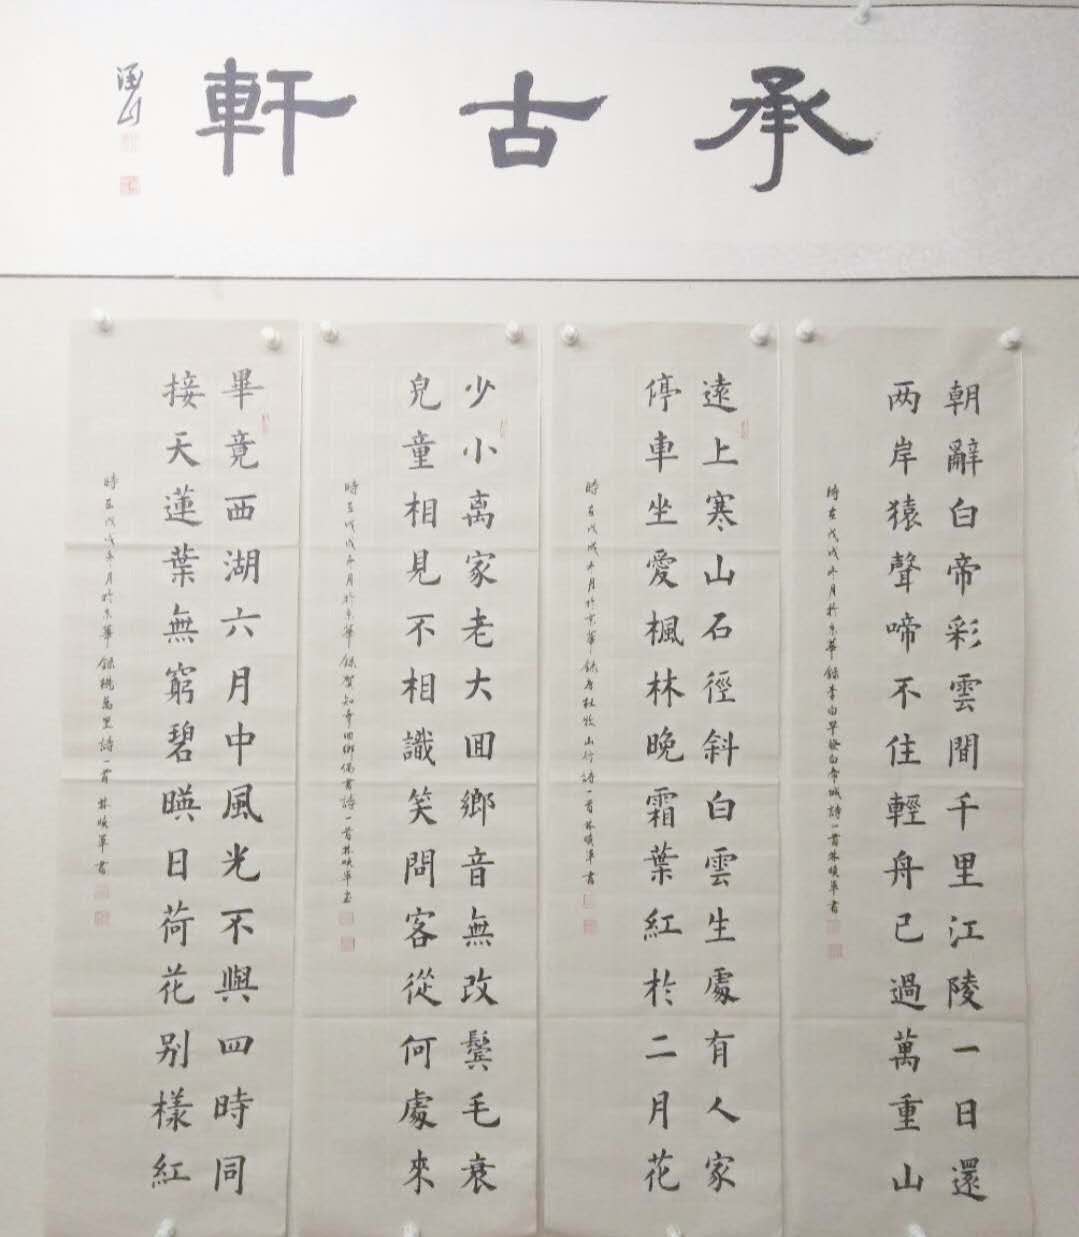 承古軒
朝辭白帝彩雲間千里江陵一日還
两岸猿聲啼不住輕舟已過萬重山
時在戊戌年月於京華錄李白早發白帝城詩一首林暎華書
遠上寒山石徑斜白雲生處有人家
停車坐愛楓林晚霜葉紅於二月花
時在戊戌年月於京華錄唐杜牧山行詩一首林暎華書
少小离家老大囬鄉音無改鬓毛衰
兒童相見不相識笑問客從何處來
時在戊戌年月於京華錄賀知章回鄉偶書詩一首林暎華書
畢竟西湖六月中風光不與四時同
接天蓮葉無窮碧暎日荷花别樣紅
時在戊戌年月於京華錄楊萬里詩一首林暎華書